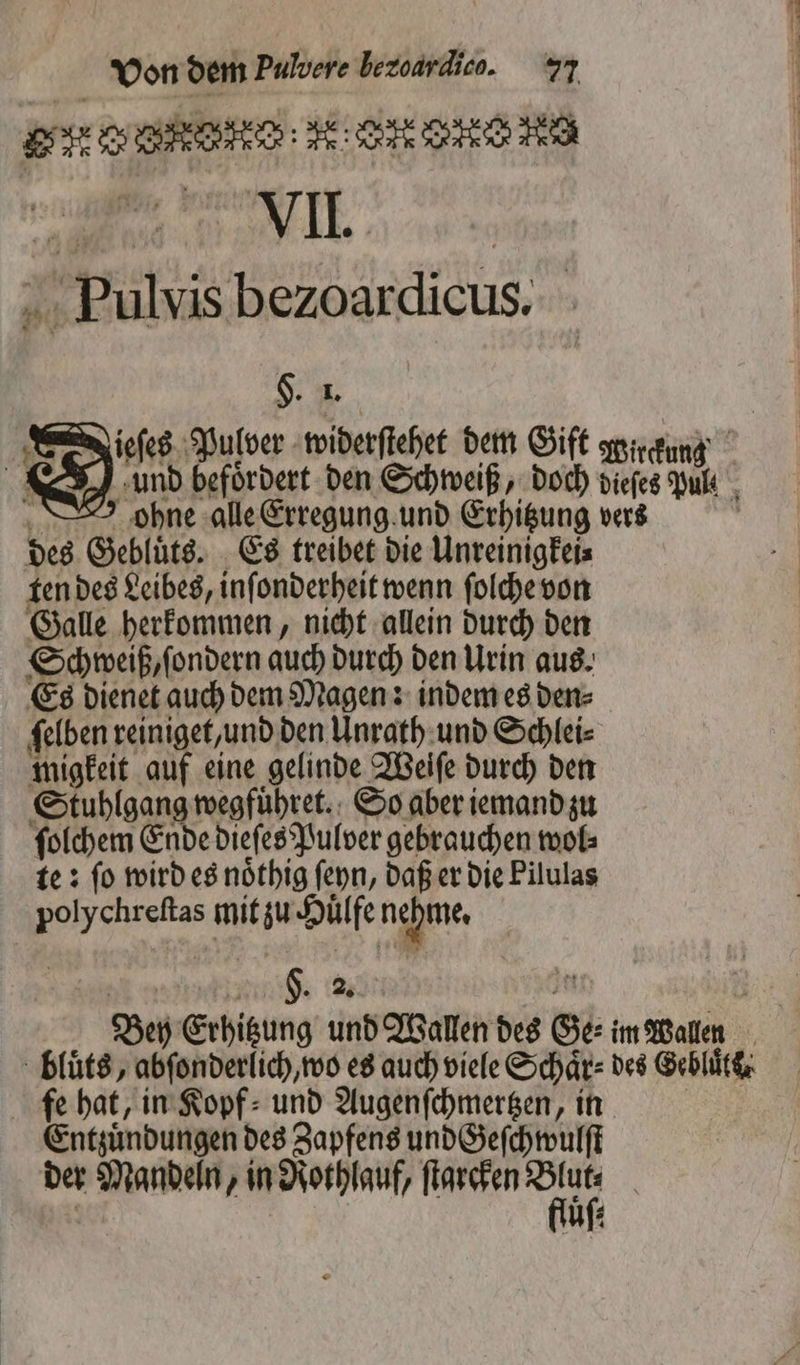 Von dem Pulvere bezoardico. 77
VII.
Pulvis bezoardicus.
§. 1.
Dieſes Pulver widerſtehet dem Gift
und befoͤrdert den Schweiß, doch
ohne alle Erregung und Erhitzung
des Gebluͤts. Es treibet die Unreinigkei⸗
ten des Leibes, inſonderheit wenn ſolche von
Galle herkommen, nicht allein durch den
Schweiß, ſondern auch durch den Urin aus.
Es dienet auch dem Magen: indem es den⸗
ſelben reiniget, und den Unrath und Schlei⸗
migkeit auf eine gelinde Weiſe durch den
Stuhlgang wegfuͤhret. So aber iemand zu
ſolchem Ende dieſes Pulver gebrauchen wol⸗
te: ſo wird es noͤthig ſeyn, daß er die Pilulas
polychreſtas mit zu Huͤlfe nehme.
Wirckung
dieſes Pul⸗
vers
§. 2.
Bey Erhitzung und Wallen des Ge⸗
bluͤts, abſonderlich, wo es auch viele Schaͤr⸗
fe hat, in Kopf⸗ und Augenſchmertzen, in
Entzuͤndungen des Zapfens und Geſchwulſt
der Mandeln, in Rothlauf, ſtarcken Blut⸗
im Wallen
des Gebluͤts.
fluͤſ⸗